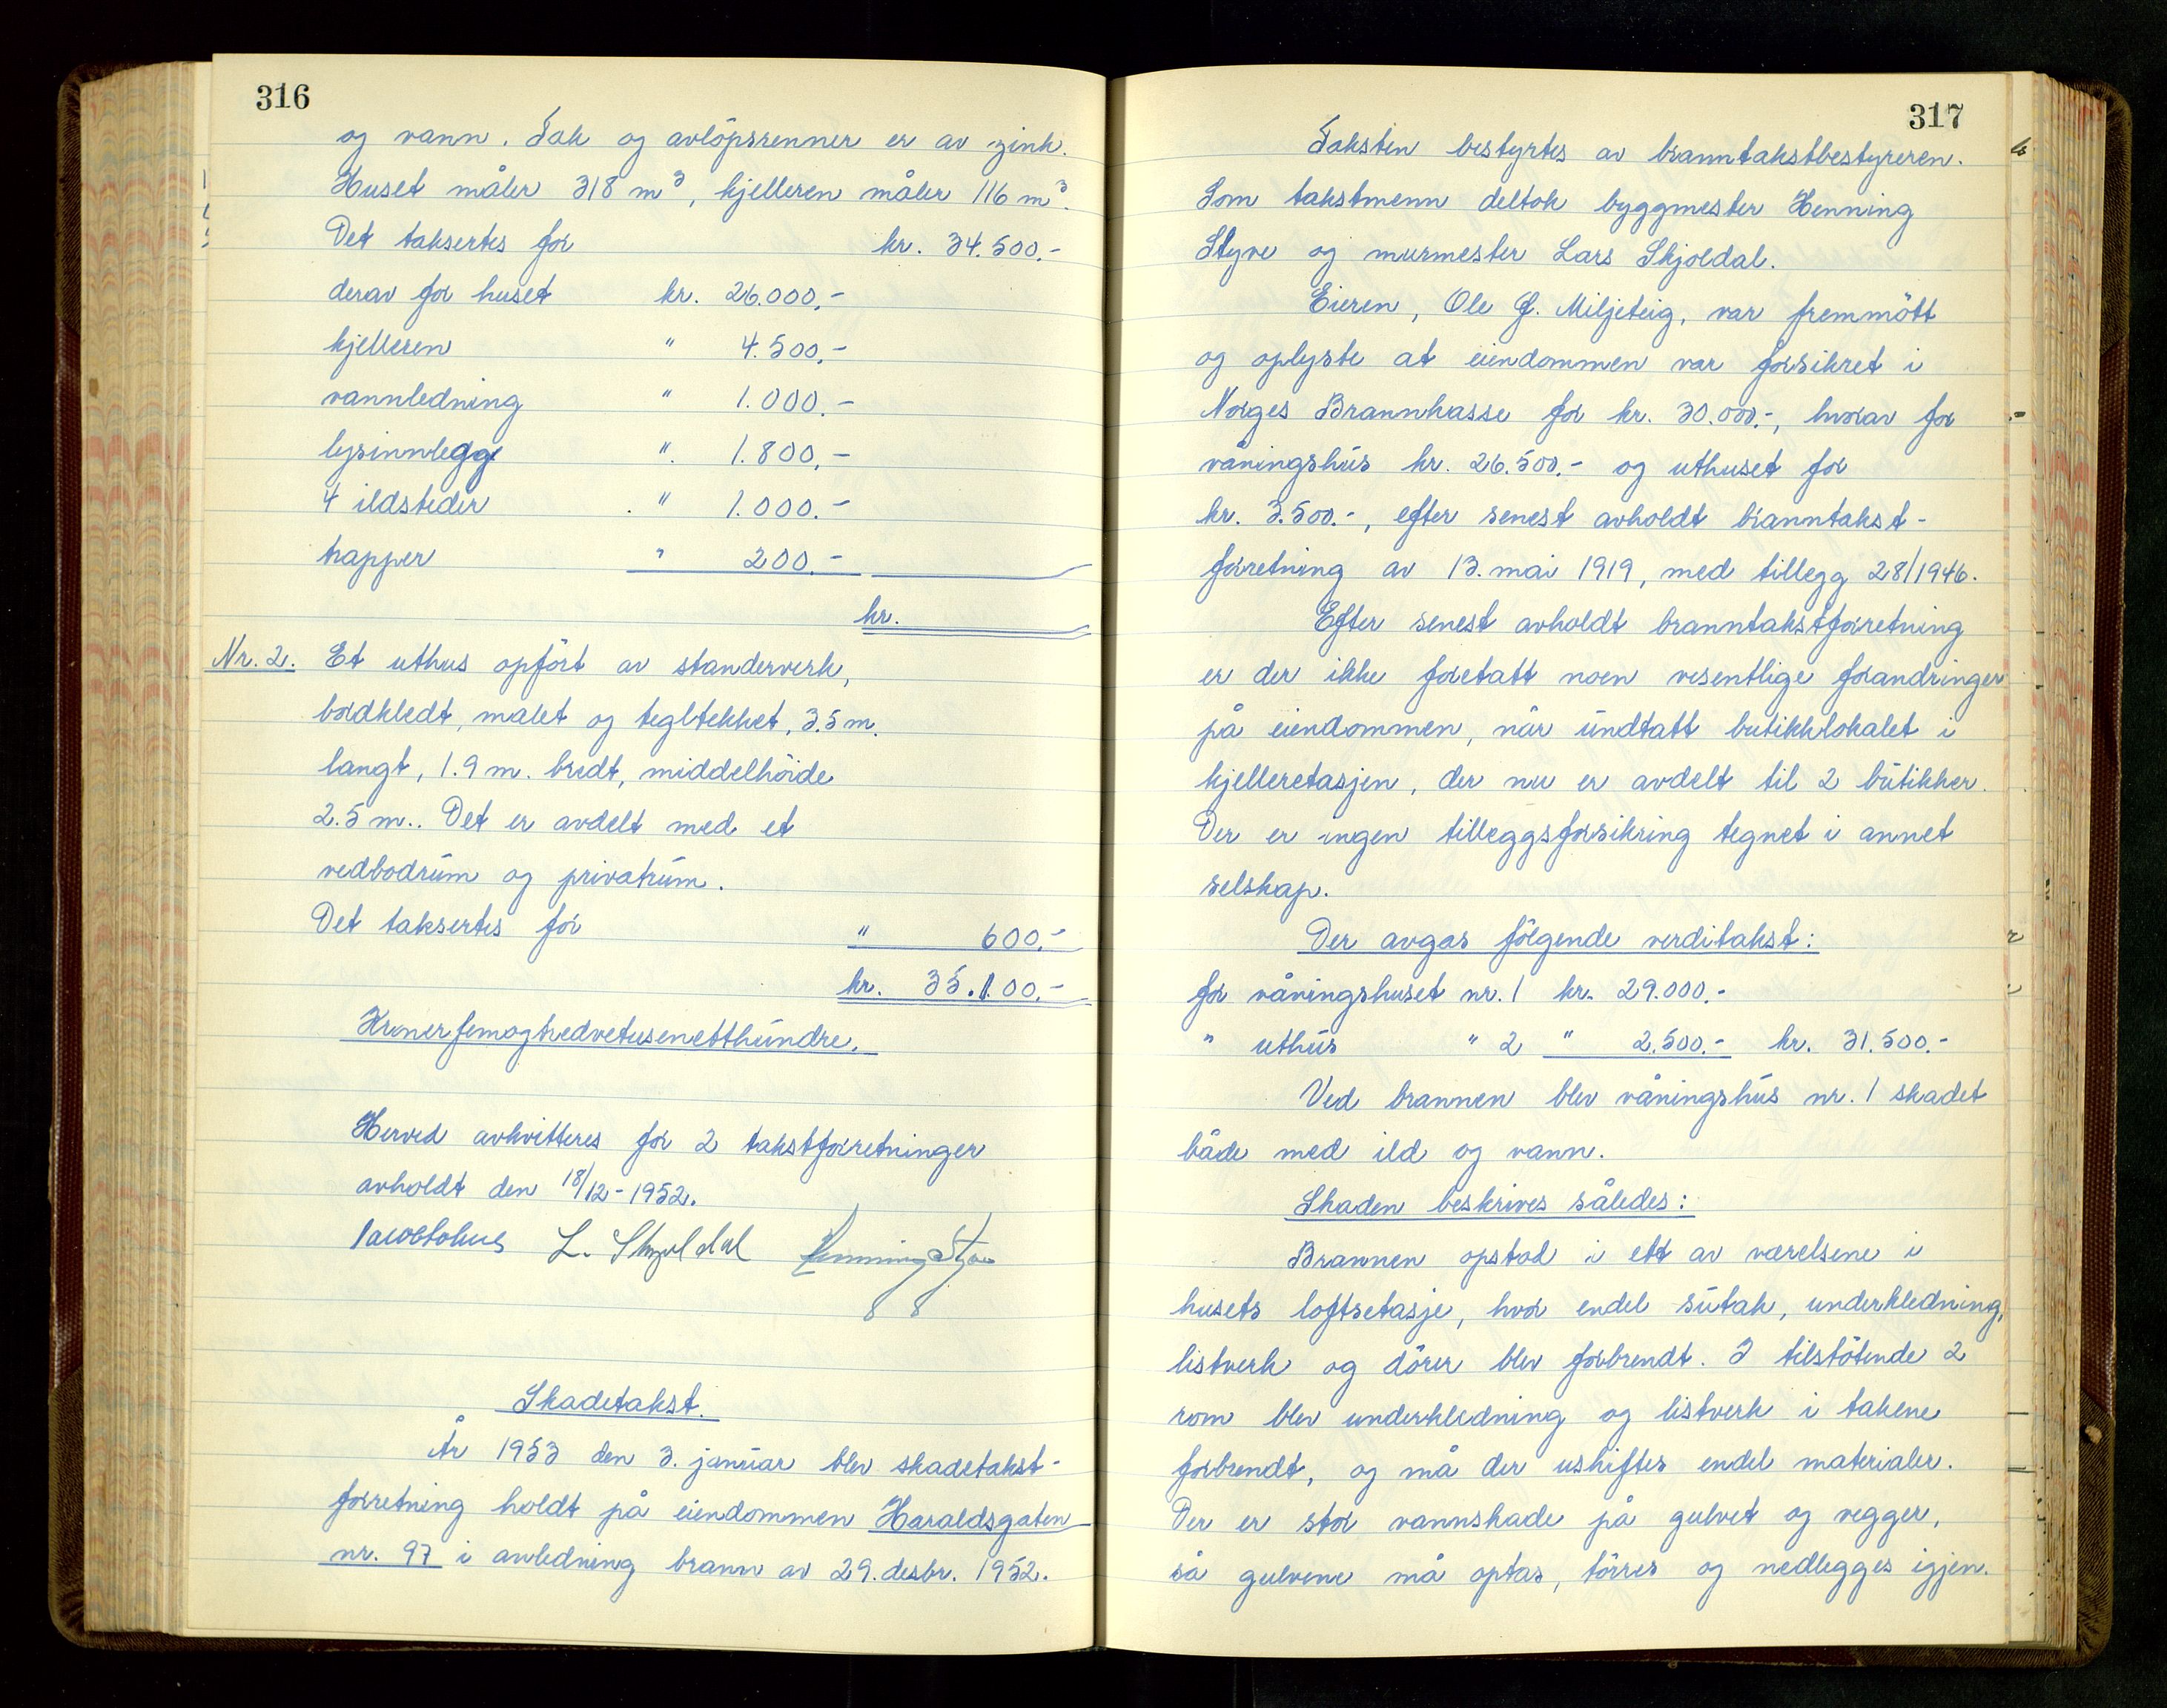 316
og vann. Tak og avlöpsrenner er av zink.
Huset måler 318 m³, kjelleren måler 116 m³.
Det taksertes for kr. 34.500.-
derav for huset kr. 26.000.-
kjelleren " 4.500.-
vannledning " 1.000.-
lysinnlegg " 1.800.-
4 ildsteder " 1.000.-
trapper " 200.-
kr.
Nr. 2. Et uthus opfört av standerverk,
bordkledt, malet og tegltekket, 3.5 m.
langt, 1.9 m. bredt, middelhöide
2.5 m.. Det er avdelt med et
vedbodrum og privatrum.
Det taksertes for " 600.-
kr. 35.100.-
Kronerfemogtredvetusenetthundre.
Herved avkvitteres for 2 takstforretninger
avholdt den 18/12-1952.
L. Skjoldal Henning Styve
Skadetakst.
År 1953 den 3. januar blev skadetakst-
forretning holdt på eiendommen Haraldsgaten
nr. 97 i anledning brann av 29. desbr. 1952.
317
Taksten bestyrtes av branntakstbestyreren.
Som takstmenn deltok byggmester Henning
Styve og murmester Lars Skjoldal.
Eieren, Ole G. Miljeteig, var fremmött
og oplyste at eiendommen var forsikret i
Norges Brannkasse for kr. 30.000.-, hvorav for
våningshus kr. 26.500.- og uthuset for
kr. 3.500.-, efter senest avholdt branntakst-
forretning av 13. mai 1919, med tillegg 28/1946.
Efter senest avholdt branntakstforretning
er der ikke foretatt noen vesentlige forandringer
på eiendommen, når undtatt butikklokalet i
kjelleretasjen, der nu er avdelt til 2 butikker.
Der er ingen tilleggsforsikring tegnet i annet
selskap.
Der avgas fölgende verditakst:
for våningshuset nr. 1 kr. 29.000.-
" uthus " 2 " 2.500.- kr. 31.500.-
Ved brannen blev våningshus nr. 1 skadet
både med ild og vann.
Skaden beskrives således:
Brannen opstod i ett av værelsene i
husets loftsetasje, hvor endel sutak, underkledning,
listverk og dörer blev forbrendt. I tilstötende 2
rom blev underkledning og listverk i takene
forbrendt, og må der uskiftes endel materialer.
Der er stor vannskade på gulvet og vegger,
så gulvene må optas, törres og nedlegges igjen.